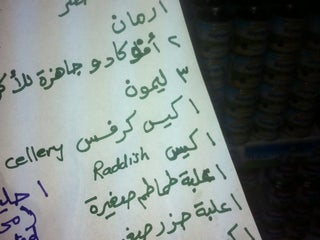 ارمان
٢ أفوكادو جاهزة للأكل
٣ ليمون
١ كيس كرفس cellery
١ كيس Raddish
١ علبة طماطم صغيرة
١ علبة جزر صغير